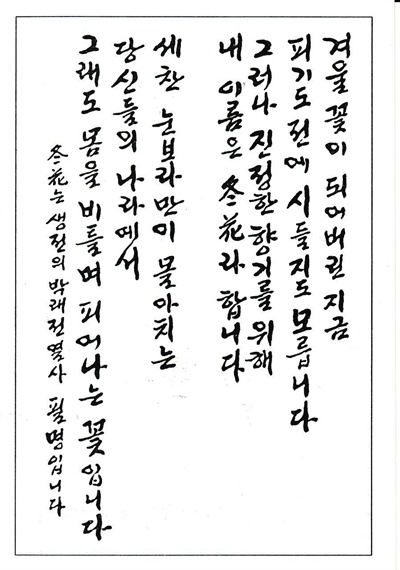 겨울꽃이 되어버린 지금
피기도 전에 시들지도 모릅니다
그러나 진정한 향기를 위해
내 이름은 冬花라 합니다
세찬 눈보라만이 몰아치는
당신들의 나라에서
그래도 몸을 비틀며 피어나는 꽃입니다
冬花는 생전의 박래전열사 필명입니다